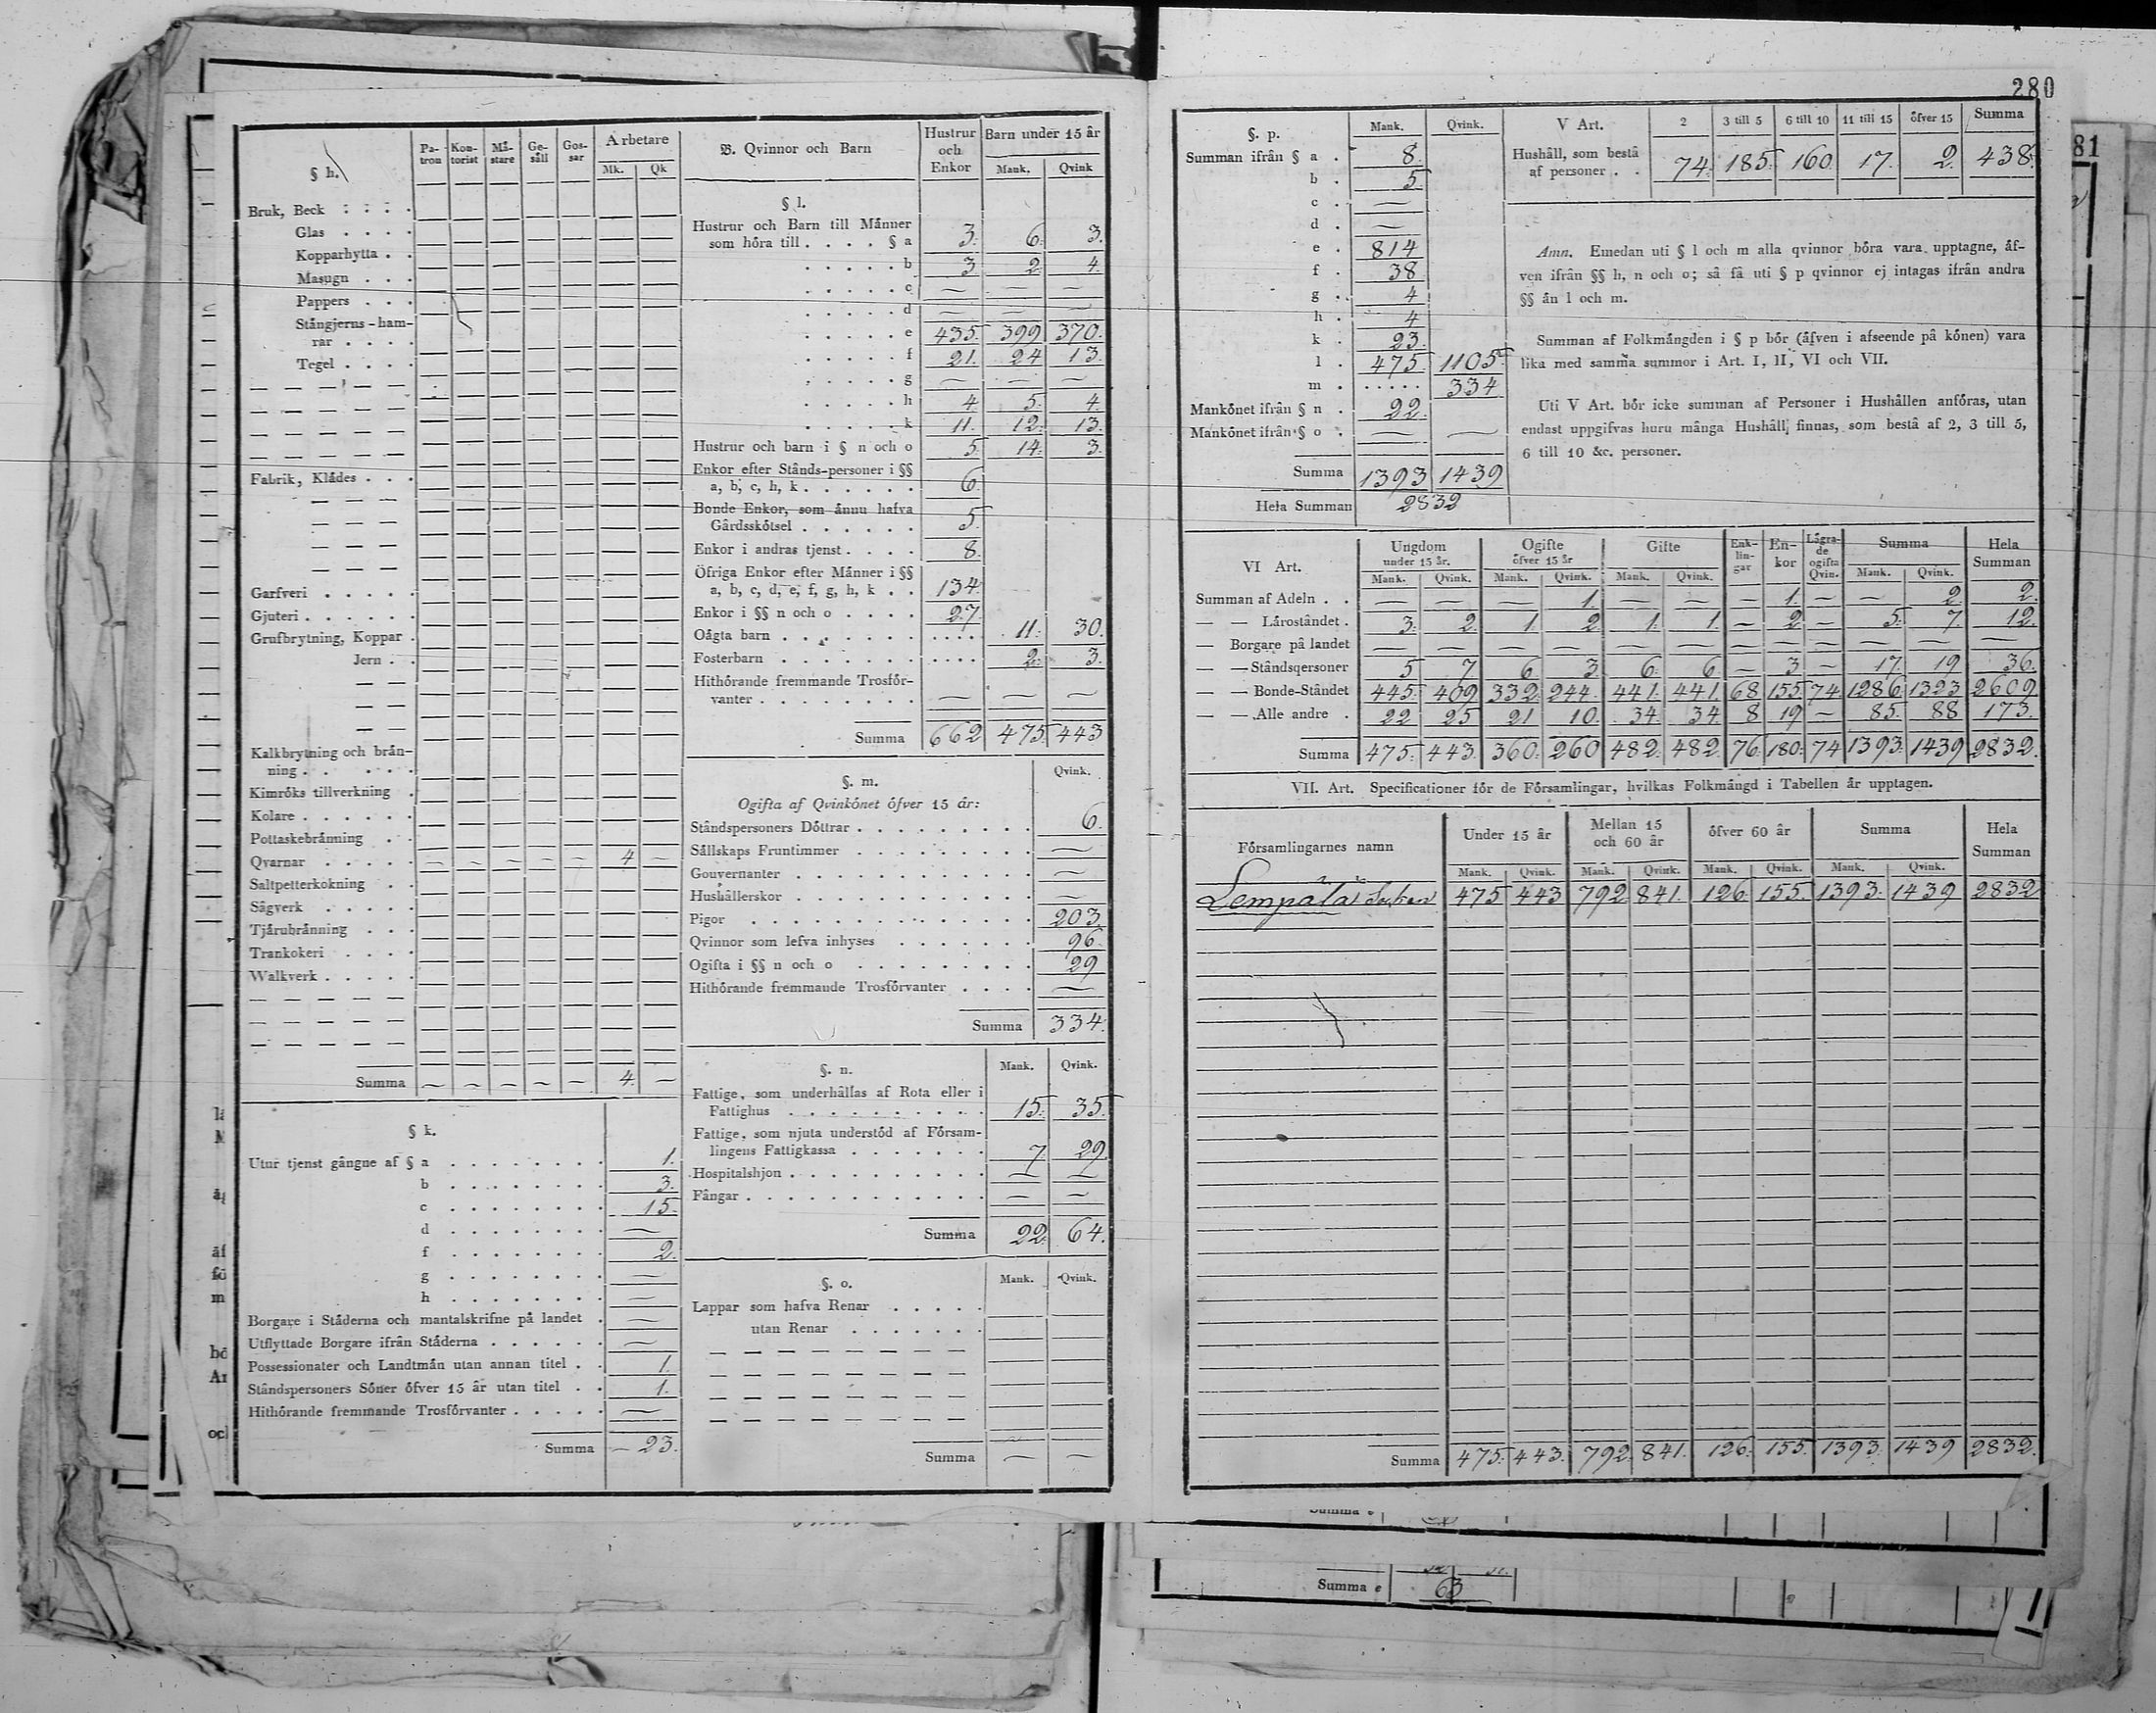 280
81
§ h.
Pa-tron Kon-torist Må-stare Ge-såll Gos-sar Arbetare
Mk. Qk
Bruk, Beck
Glas
Kopparhytta
Masugn
Pappers
Stångjerns-ham-
rar
Tegel
Fabrik, Klådes
Garfveri
Gjuteri
Grufbrytning, Koppar
Jern
Kalkbrytning och brån-
ning
Kimróks tillverkning
Kolare
Pottaskebrånning
Qvarnar — — — — — 4 —
Saltpetterkokning
Sågverk
Tjårubrånning
Trankokeri
Walkverk
Summa — — — — — 4. —
§ k.
Utur tjenst gångne af § a 1.
b 3.
c 15.
d —
f 2.
g —
h —
Borgare i Ståderna och mantalskrifne på landet —
Utflyttade Borgare ifrån Ståderna —
Possessionater och Landtmån utan annan titel 1.
Ståndspersoners Sóner ófver 15 år utan titel 1.
Hithórande fremmande Trosfórvanter —
Summa — 23.
B. Qvinnor och Barn Hustrur och Enkor Barn under 15 år
Mank. Qvink
§ l.
Hustrur och Barn till Månner
som hóra till . . . . § a 3. 6. 3.
b 3 2 4.
c — — —
d — — —
e 435. 399 370.
f 21. 24 13.
g — — —
h 4. 5. 4.
k 11. 12. 13.
Hustrur och barn i § n och o 5. 14. 3.
Enkor efter Stånds-personer i §§
a, b, c, h, k 6.
Bonde Enkor, som ånnu hafva
Gårdsskótsel 5.
Enkor i andras tjenst 8.
Öfriga Enkor efter Månner i §§
a, b, c, d, e, f, g, h, k 134.
Enkor i §§ n och o 27.
Oågta barn .... 11. 30.
Fosterbarn .... 2. 3.
Hithórande fremmande Trosfór-
vanter — — —
Summa 662 475. 443
§. m. Qvink.
Ogifta af Qvinkónet ófver 15 år:
Ståndspersoners Dóttrar 6.
Sållskaps Fruntimmer —
Gouvernanter —
Hushållerskor —
Pigor 203.
Qvinnor som lefva inhyses 96.
Ogifta i §§ n och o 29
Hithórande fremmande Trosfórvanter —
Summa 334.
§. n. Mank. Qvink.
Fattige, som underhållas af Rota eller i
Fattighus 15. 35.
Fattige, som njuta understód af Fórsam-
lingens Fattigkassa 7. 29.
Hospitalshjon — —
Fångar — —
Summa 22. 64.
§. o. Mank. Qvink.
Lappar som hafva Renar
utan Renar
Summa — —
§. p. Mank. Qvink.
Summan ifrån § a . 8.
b . 5.
c . —
d . —
e . 814
f . 38
g . 4
h . 4
k . 23.
l . 475. 1105
m . ..... 334
Mankónet ifrån § n . 22.
Mankónet ifrån § o . — —
Summa 1393 1439
Hela Summan 2832
V Art. 2 3 till 5 6 till 10 11 till 15 ófver 15 Summa
Hushåll, som bestå
af personer . . 74. 185. 160. 17. 2. 438.
Anm. Emedan uti § l och m alla qvinnor bóra vara upptagne, åf-
ven ifrån §§ h, n och o; så få uti § p qvinnor ej intagas ifrån andra
§§ ån l och m.
Summan af Folkmångden i § p bór (åfven i afseende på kónen) vara
lika med samma summor i Art. I, II, VI och VII.
Uti V Art. bór icke summan af Personer i Hushållen anfóras, utan
endast uppgifvas huru många Hushåll, finnas, som bestå af 2, 3 till 5,
6 till 10 &c. personer.
VI Art. Ungdom under 15 år. Ogifte ófver 15 år Gifte Enk-lin-gar En-kor Lågra-de ogifta Qvin. Summa Hela Summan
Mank. Qvink. Mank. Qvink. Mank. Qvink. Mank. Qvink.
Summan af Adeln . . — — — 1. — — — 1. — — 2 2.
— — Låroståndet . 3. 2. 1. 2 1. 1. — 2 — 5. 7 12.
— Borgare på landet — — — — — — — — — — — —
— — Ståndsqersoner 5 7 6 3 6. 6. — 3 — 17. 19 36.
— — Bonde-Ståndet 445. 409 332. 244. 441. 441. 68 155. 74. 1286. 1323 2609.
— — Alle andre . 22 25 21 10. 34. 34. 8 19 — 85. 88 173.
Summa 475. 443. 360. 260 482. 482. 76. 180. 74 1393. 1439 2832.
VII. Art. Specificationer fór de Fórsamlingar, hvilkas Folkmångd i Tabellen år upptagen.
Fórsamlingarnes namn Under 15 år Mellan 15 och 60 år ófver 60 år Summa Hela Summan
Mank. Qvink. Mank. Qvink. Mank. Qvink. Mank. Qvink.
Lempäla 475 443 792. 841. 126. 155. 1393. 1439 2832
Summa 475. 443. 792. 841. 126. 155. 1393. 1439 2832.
Summa e
Summa e 63